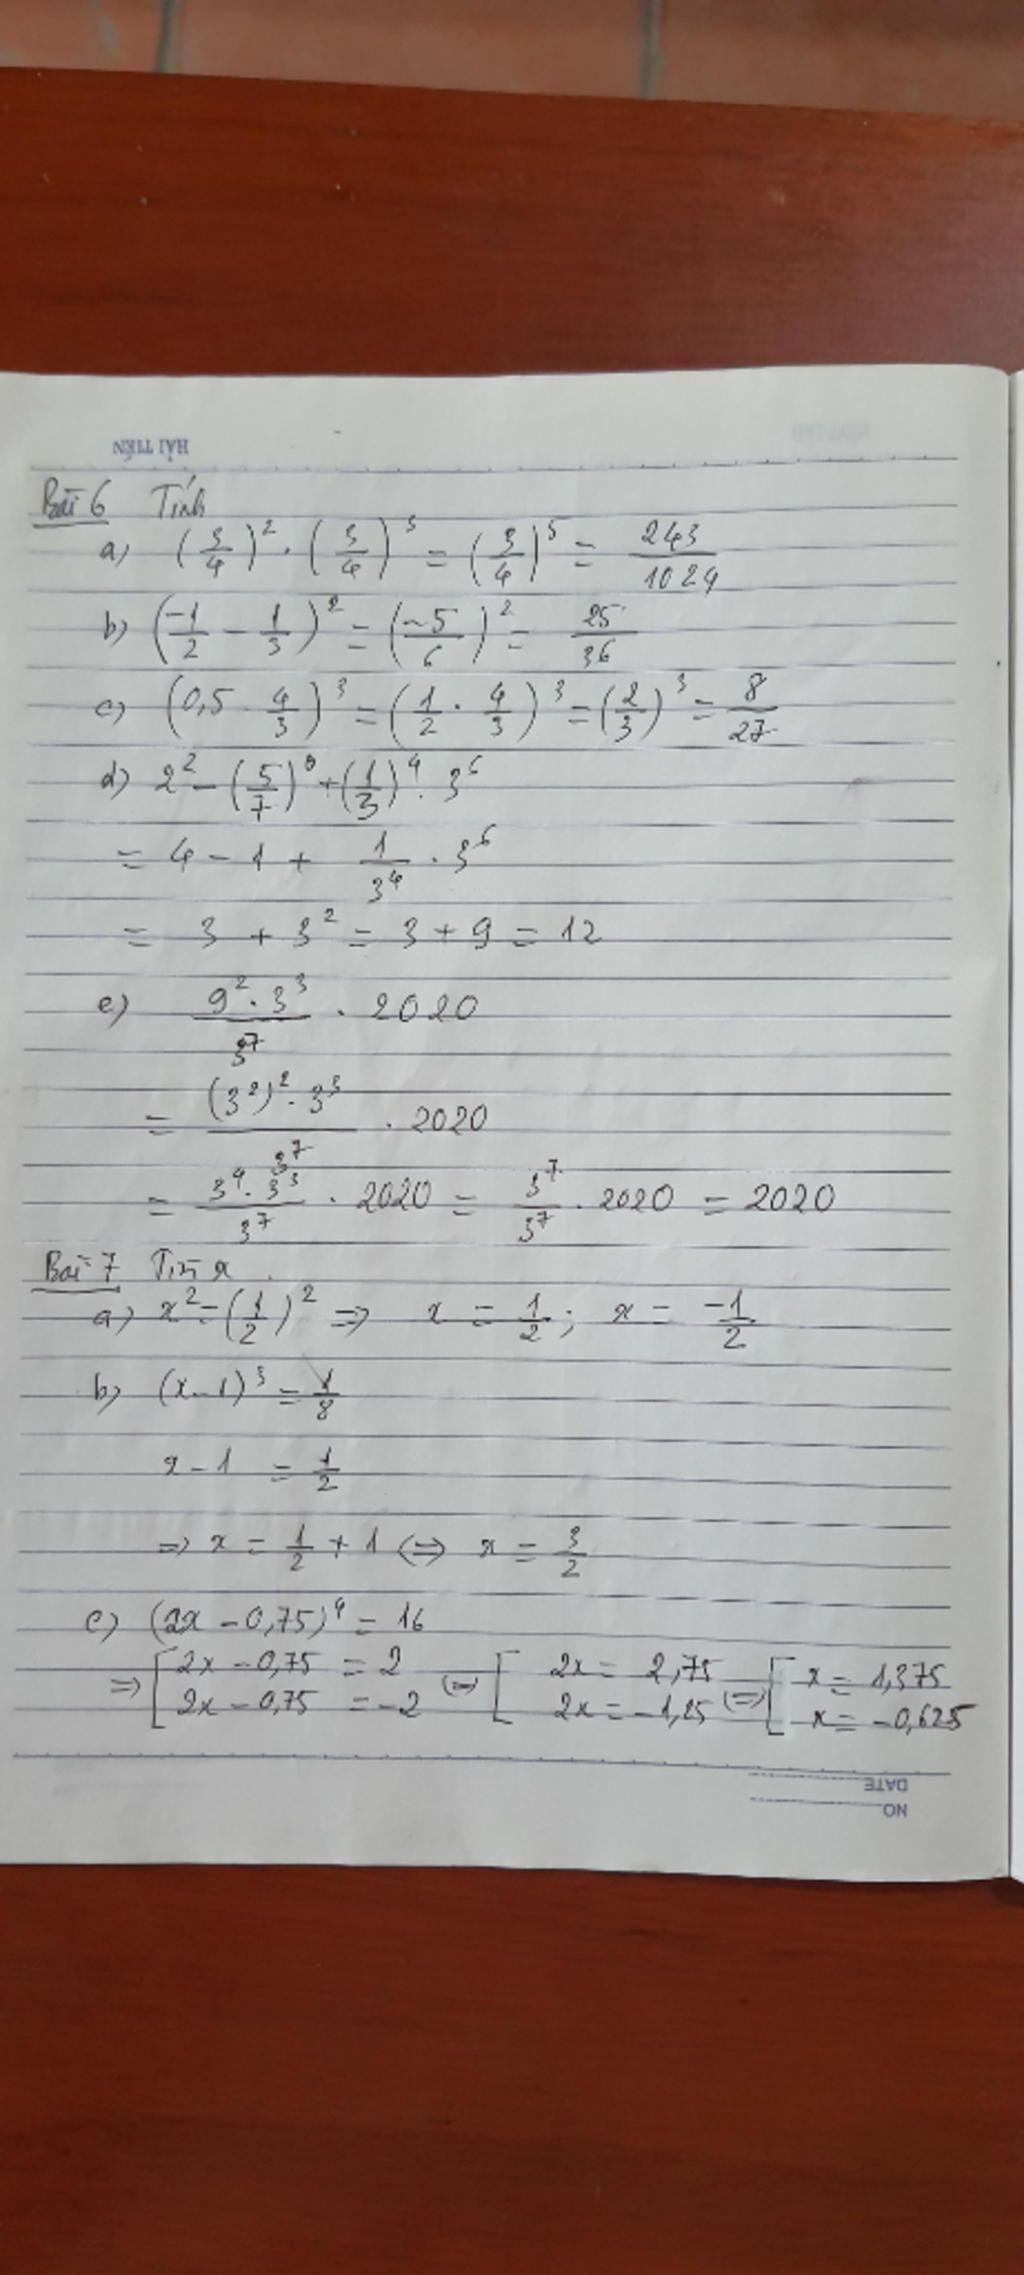 HẢI TIẾN
Bài 6 Tính
a) (3/4)^2 . (3/4)^3 = (3/4)^5 = 243/1024
b) (-1/2 - 1/3)^2 = (-5/6)^2 = 25/36
c) (0,5 . 4/3)^3 = (1/2 . 4/3)^3 = (2/3)^3 = 8/27
d) 2^2 - (5/7)^0 + (1/3)^4 . 3^6
= 4 - 1 + 1/3^4 . 3^6
= 3 + 3^2 = 3 + 9 = 12
e) 9^2 . 3^3 / 3^7 . 2020
= (3^2)^2 . 3^3 / 3^7 . 2020
= 3^4 . 3^3 / 3^7 . 2020 = 3^7/3^7 . 2020 = 2020
Bài 7 Tìm x
a) x^2 = (1/2)^2 => x = 1/2 ; x = -1/2
b) (x - 1)^3 = 1/8
x - 1 = 1/2
=> x = 1/2 + 1 <=> x = 3/2
c) (2x - 0,75)^4 = 16
=> [ 2x - 0,75 = 2 <=> [ 2x = 2,75 <=> [ x = 1,375
2x - 0,75 = -2 2x = -1,25 x = -0,625
DATE
NO